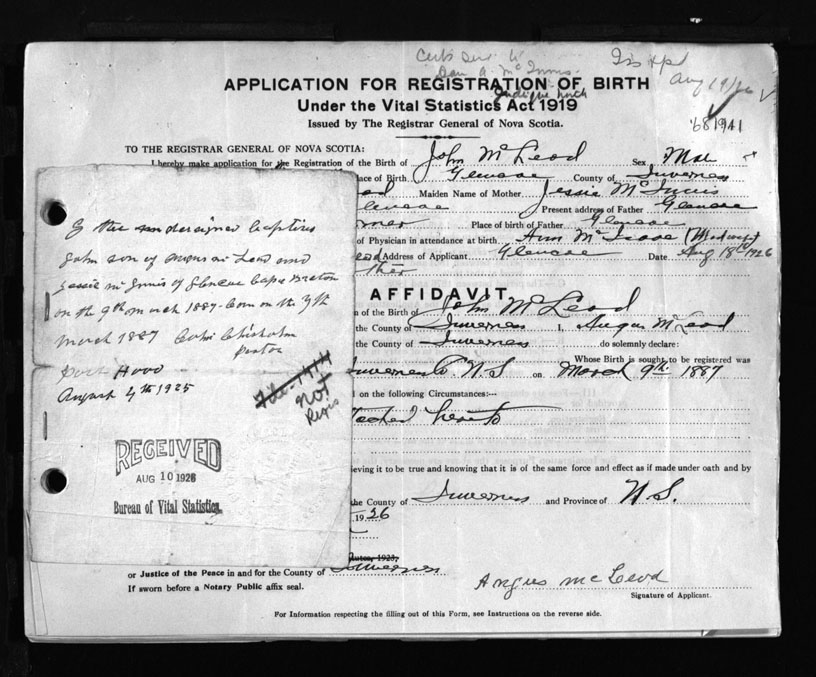 Dan A. McInnis
Aug 19/26
APPLICATION FOR REGISTRATION OF BIRTH
Under the Vital Statistics Act 1919
Issued by The Registrar General of Nova Scotia.
681941
TO THE REGISTRAR GENERAL OF NOVA SCOTIA:
I hereby make application for the Registration of the Birth of John McLeod Sex Male
lace of Birth Glencoe County of Inverness
Maiden Name of Mother Jessie McInnis
Glencoe Present address of Father Glencoe
Place of birth of Father Glencoe
of Physician in attendance at birth Ann (Midwife)
Address of Applicant Glencoe Date Aug 18th 1926
AFFIDAVIT
n of the Birth of John McLeod
the County of Inverness I, Angus McLeod
the County of Inverness do solemnly declare:
Whose Birth is sought to be registered was
Inverness Co. N.S on March 9th 1887
on the following Circumstances:—
hereto
ieving it to be true and knowing that it is of the same force and effect as if made under oath and by
the County of Inverness and Province of N.S.
1926
or Justice of the Peace in and for the County of Inverness
If sworn before a Notary Public affix seal.
Angus McLeod
Signature of Applicant.
For Information respecting the filling out of this Form, see Instructions on the reverse side.
I the undersigned baptised
John son of Angus McLeod and
Jessie McInnis of Glencoe Cape Breton
on the 9th March 1887 born on the 7th
March 1887 Colin Chisholm
Pastor
Port Hood
August 4th 1925
not
Regis
RECEIVED
AUG 10 1926
Bureau of Vital Statistics.